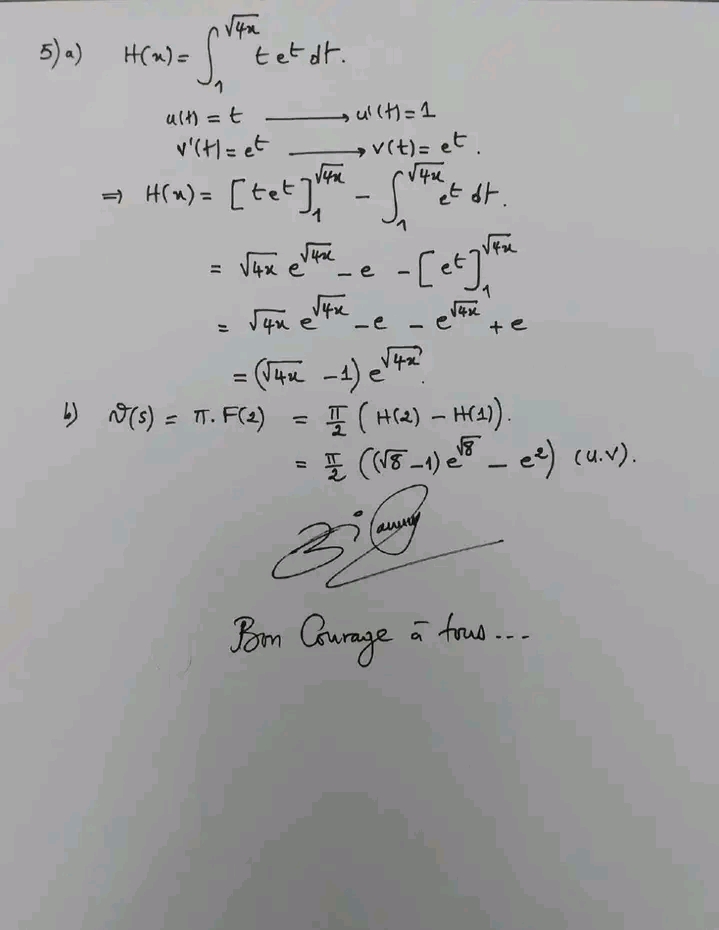 5) a) H(x) = ∫₁^√4x t e^t dt.
u(t) = t ⟶ u'(t) = 1
v'(t) = e^t ⟶ v(t) = e^t.
⇒ H(x) = [t e^t]₁^√4x − ∫₁^√4x e^t dt.
= √4x e^√4x − e − [e^t]₁^√4x
= √4x e^√4x − e − e^√4x + e
= (√4x − 1) e^√4x.
b) V(S) = π. F(2) = π/2 ( H(2) − H(1) ).
= π/2 ((√8 − 1) e^√8 − e²) (u.v).
Bon Courage à tous...